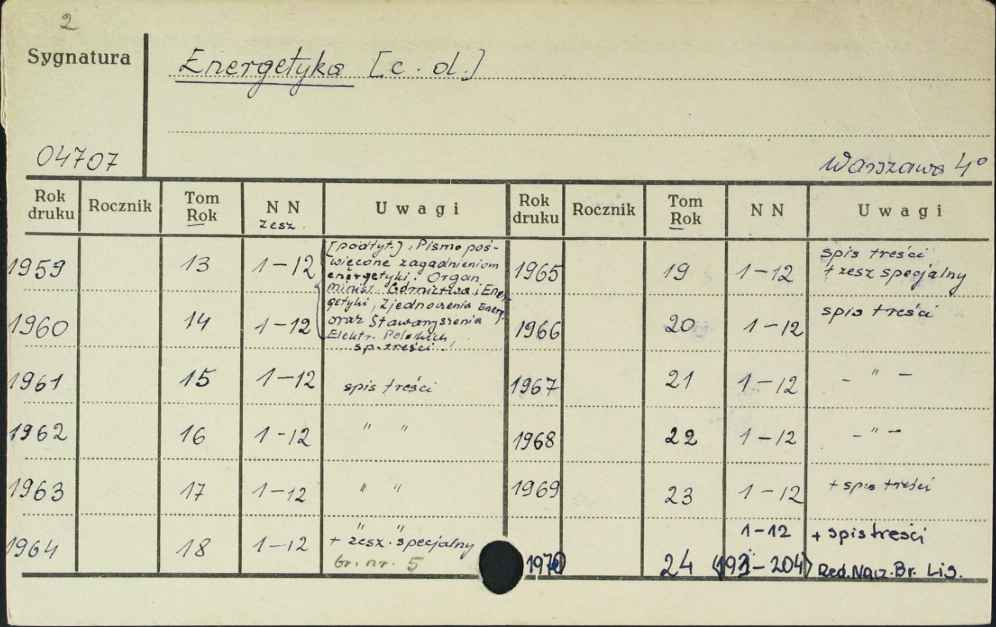 2
Sygnatura
Energetyka [c. d.]
04707
Warszawa 4°
Rok druku Rocznik Tom Rok N N zesz. Uwagi Rok druku Rocznik Tom Rok N N Uwagi
1959 13 1-12
[podtyt.]: Pismo poś-
więcone zagadnieniom
energetyki. Organ
Minist. Górnictwa i Ener-
getyki, Zjednoczenia Energ.
oraz Stowarzyszenia
Elektr. Polskich
sp. treści
1965 19 1-12 spis treści
+ zesz specjalny
1960 14 1-12
1966 20 1-12 spis treści
1961 15 1-12 spis treści
1967 21 1-12 - " -
1962 16 1-12 " "
1968 22 1-12 - " -
1963 17 1-12 " "
1969 23 1-12 + spis treści
1964 18 1-12 " "
+ zesz. specjalny
br. nr. 5
1970 24 1-12 (193-204) + spis treści
Red. Nacz. Br. Lis.